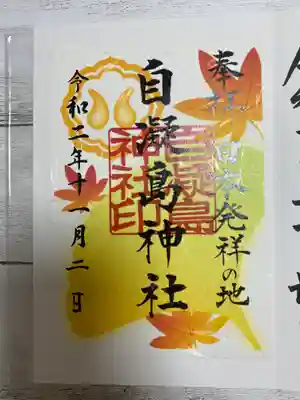 奉拝 日本発祥の地
自凝島神社
自凝島
神社印
令和二年十一月二日